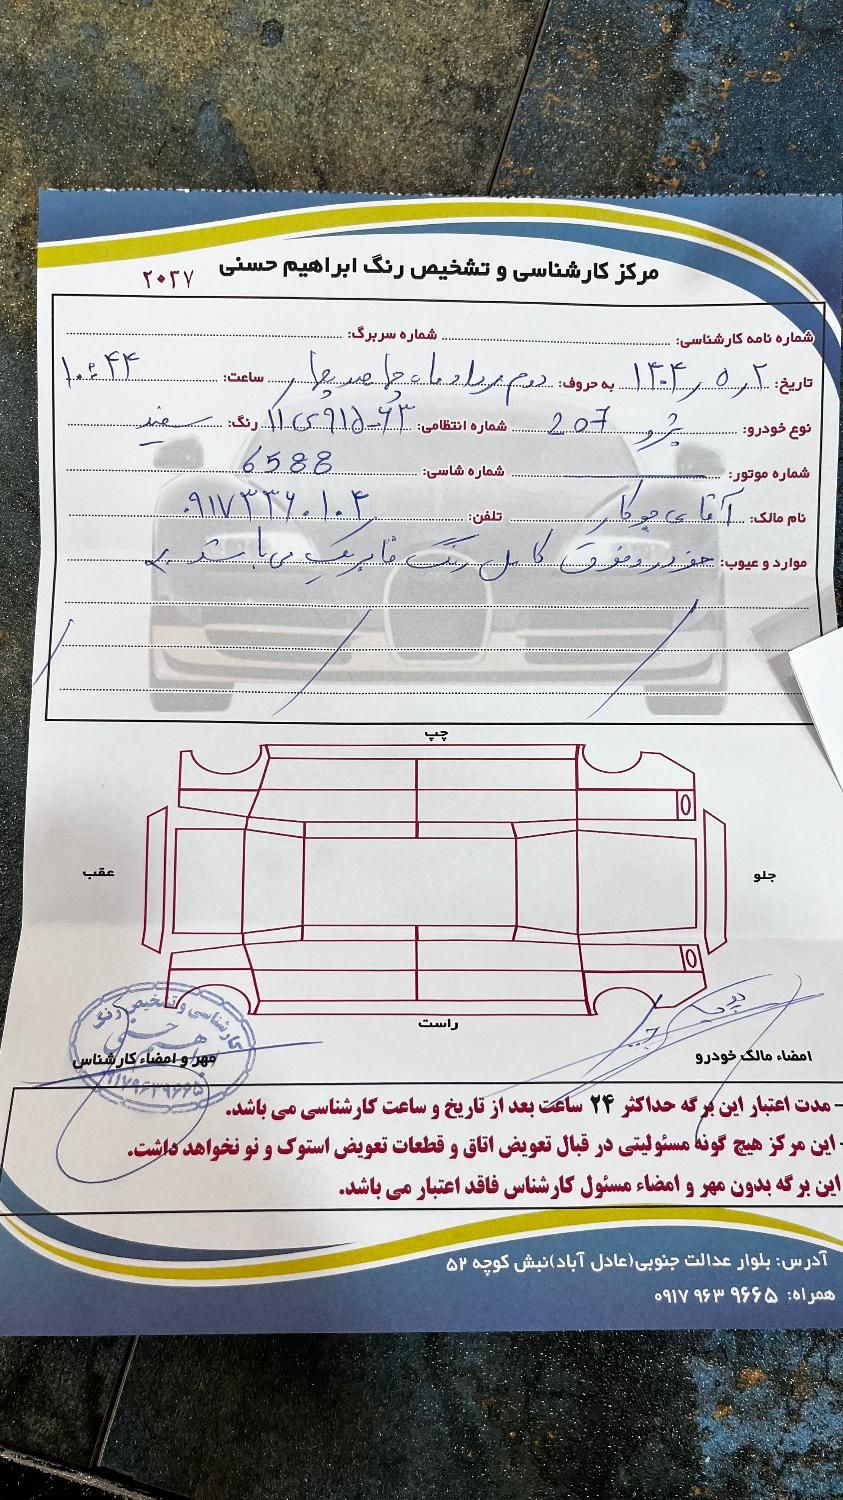 مرکز کارشناسی و تشخیص رنگ ابراهیم حسنی ۲۰۳۷
شماره نامه کارشناسی: شماره سربرگ:
تاریخ: ۱۴۰۴/۵/۲ به حروف: دوم مرداد ماه چهارصد چهار ساعت: ۱۰:۴۴
نوع خودرو: پژو 207 شماره انتظامی: ۶۳-۹۱۵ی۱۱ رنگ: سفید
شماره موتور: شماره شاسی: 6588
نام مالک: آقای تلفن: ۰۹۱۷۳۳۶۰۱۰۴
موارد و عیوب: خودرو فوق کامل رنگ فابریک می باشد
چپ
عقب
جلو
راست
کارشناسی و تشخیص رنگ
۰۹۱۷۹۶۳۹۶۶۵
مهر و امضاء کارشناس امضاء مالک خودرو
- مدت اعتبار این برگه حداکثر ۲۴ ساعت بعد از تاریخ و ساعت کارشناسی می باشد.
- این مرکز هیچ گونه مسئولیتی در قبال تعویض اتاق و قطعات تعویض استوک و نو نخواهد داشت.
این برگه بدون مهر و امضاء مسئول کارشناس فاقد اعتبار می باشد.
آدرس: بلوار عدالت جنوبی(عادل آباد)نبش کوچه ۵۲
همراه: ۰۹۱۷ ۹۶۳ ۹۶۶۵